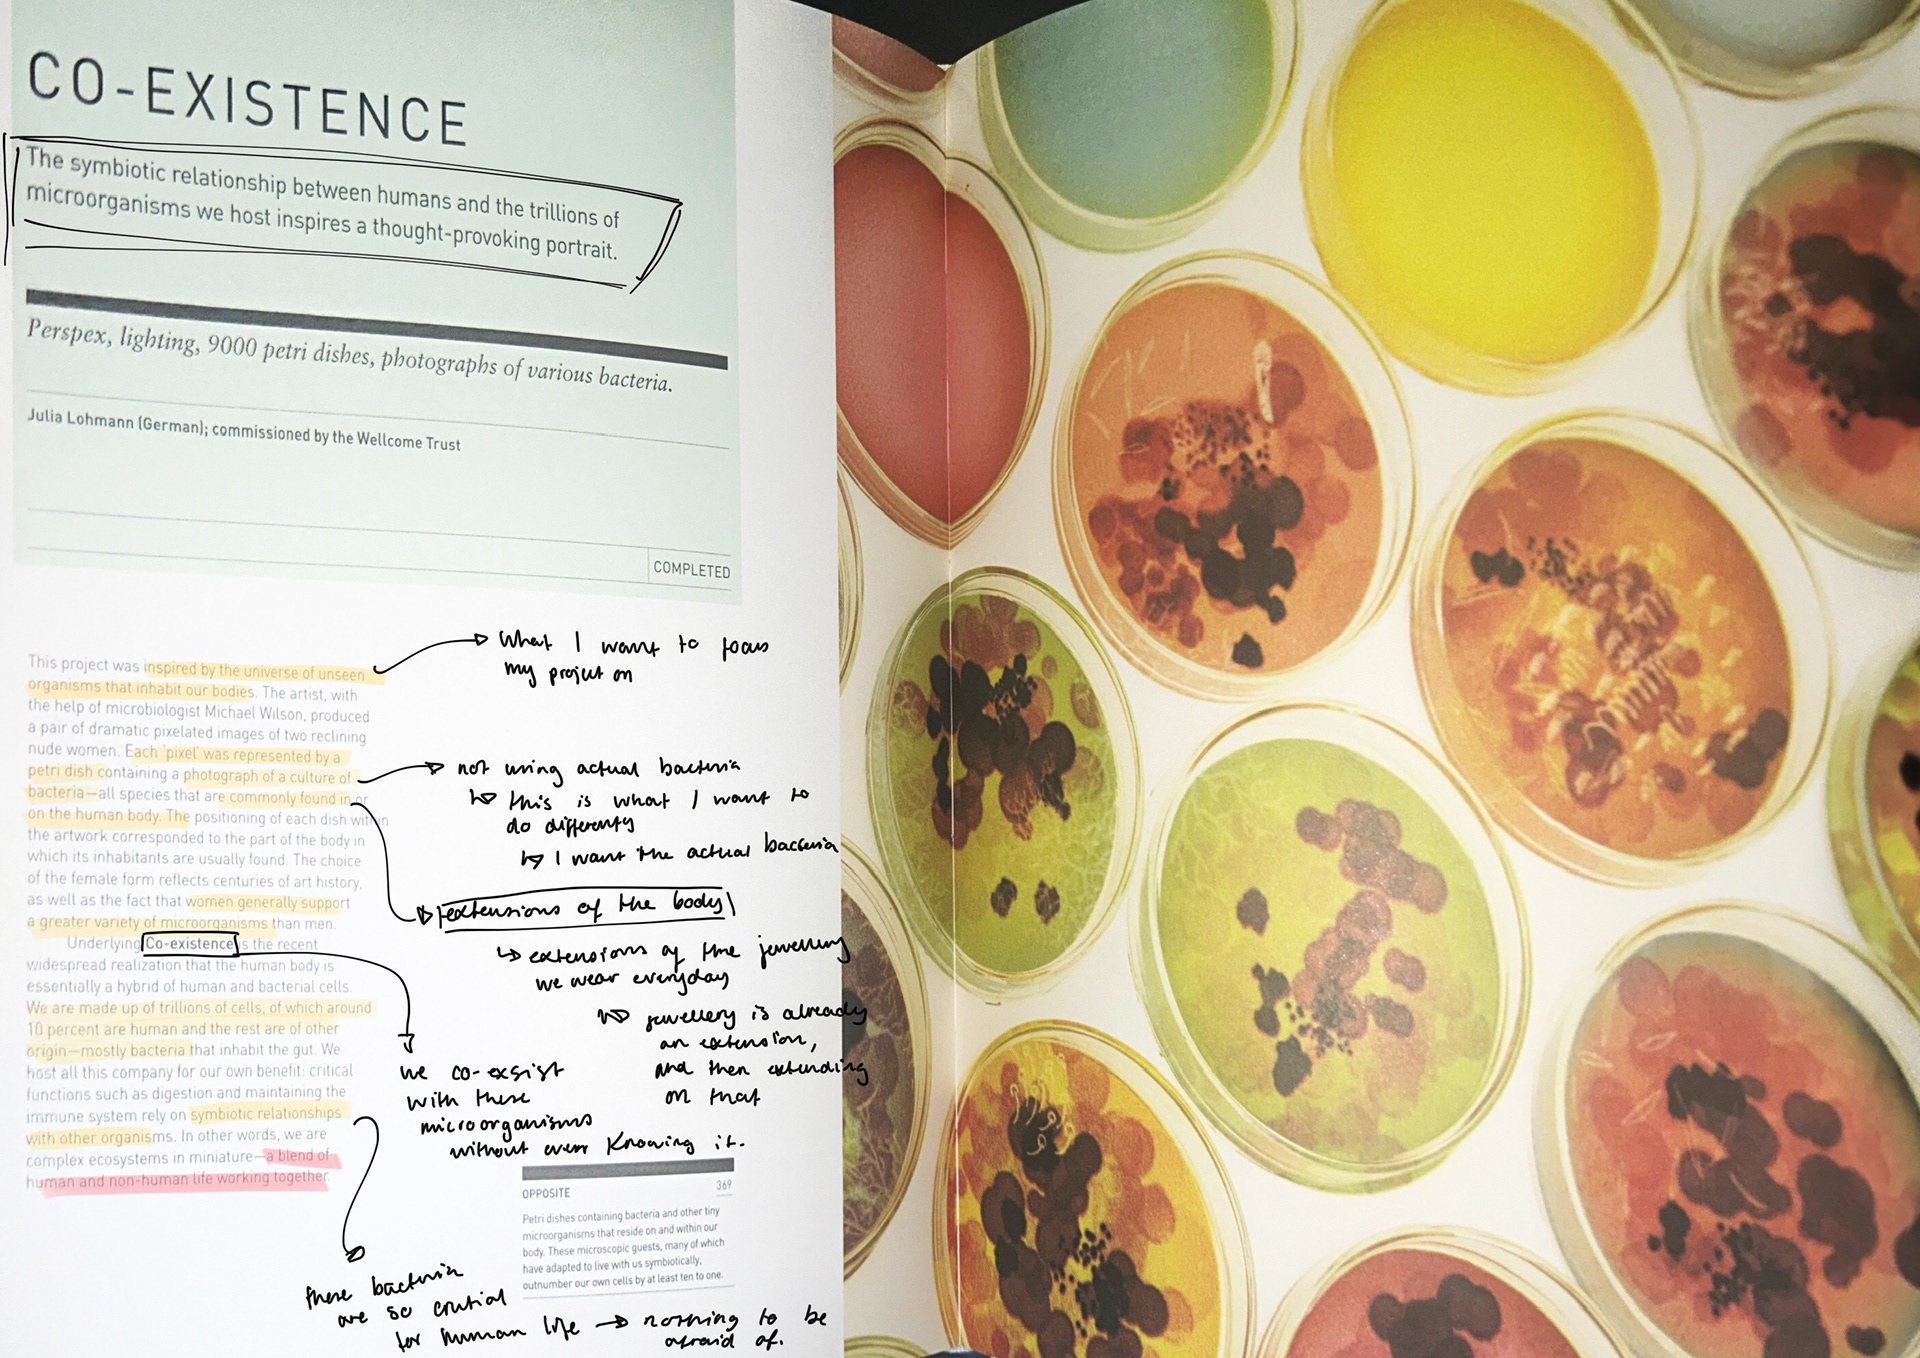 CO-EXISTENCE
The symbiotic relationship between humans and the trillions of
microorganisms we host inspires a thought-provoking portrait.
Perspex, lighting, 9000 petri dishes, photographs of various bacteria.
Julia Lohmann (German); commissioned by the Wellcome Trust
COMPLETED
This project was inspired by the universe of unseen
organisms that inhabit our bodies. The artist, with
the help of microbiologist Michael Wilson, produced
a pair of dramatic pixelated images of two reclining
nude women. Each 'pixel' was represented by a
petri dish containing a photograph of a culture of
bacteria—all species that are commonly found in or
on the human body. The positioning of each dish within
the artwork corresponded to the part of the body in
which its inhabitants are usually found. The choice
of the female form reflects centuries of art history,
as well as the fact that women generally support
a greater variety of microorganisms than men.
Underlying Co-existence is the recent
widespread realization that the human body is
essentially a hybrid of human and bacterial cells.
We are made up of trillions of cells, of which around
10 percent are human and the rest are of other
origin—mostly bacteria that inhabit the gut. We
host all this company for our own benefit: critical
functions such as digestion and maintaining the
immune system rely on symbiotic relationships
with other organisms. In other words, we are
complex ecosystems in miniature—a blend of
human and non-human life working together.
What I want to focus
my project on
not using actual bacteria
this is what I want to
do differently
I want the actual bacteria
extensions of the body
extensions of the jewellery
we wear everyday
jewellery is already
an extension,
and then extending
on that
we co-exsist
with these
microorganisms
without even knowing it.
OPPOSITE
369
Petri dishes containing bacteria and other tiny
microorganisms that reside on and within our
body. These microscopic guests, many of which
have adapted to live with us symbiotically,
outnumber our own cells by at least ten to one.
these bacteria
are so crutial
for human life → nothing to be
afraid of.